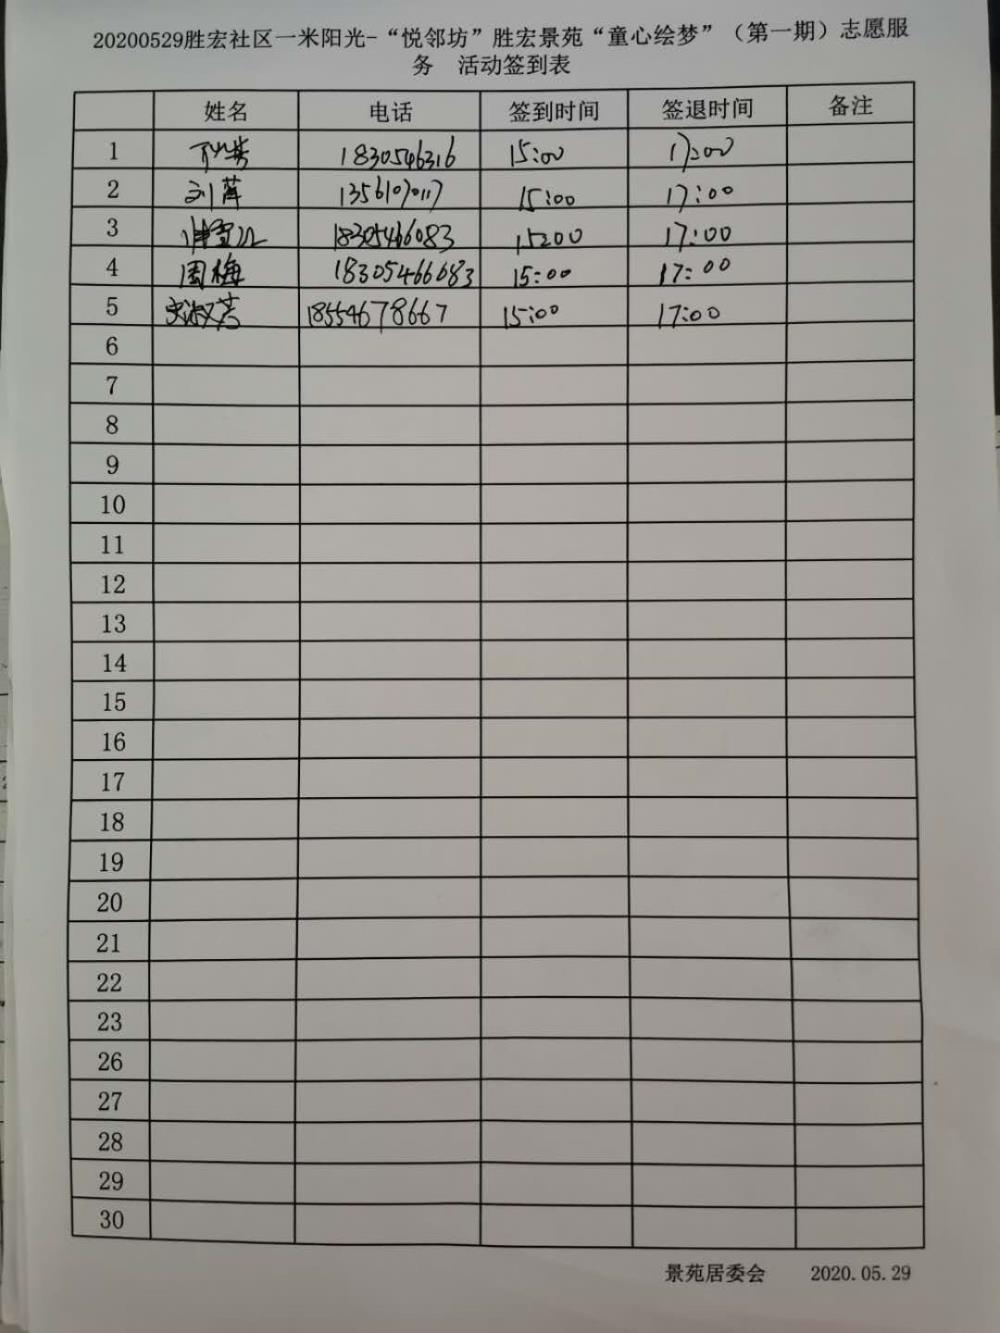 20200529胜宏社区一米阳光-“悦邻坊”胜宏景苑“童心绘梦”（第一期）志愿服
务 活动签到表
姓名 电话 签到时间 签退时间 备注
1 1830546316 15:00 17:00
2 刘萍 13561070117 15:00 17:00
3 18305466083 15:00 17:00
4 周梅 18305466083 15:00 17:00
5 淑芳 18554678667 15:00 17:00
6
7
8
9
10
11
12
13
14
15
16
17
18
19
20
21
22
23
26
27
28
29
30
景苑居委会 2020.05.29